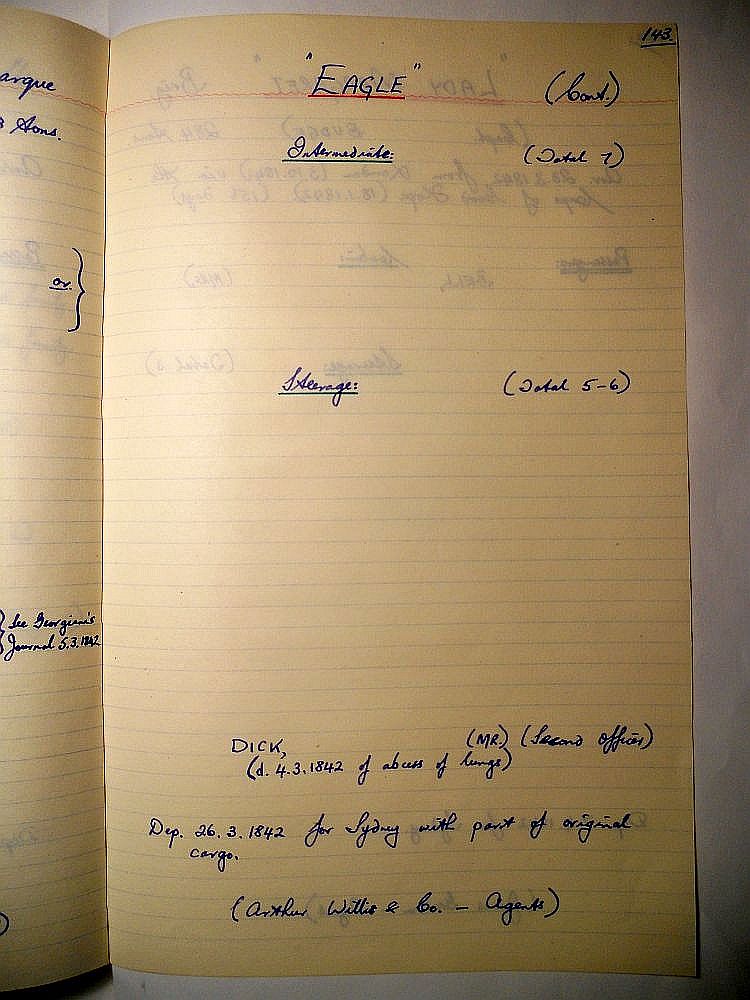 arque
Sons.
or
See Georgina's
Journal 5.3.1842
143.
"EAGLE" (Cont.)
Intermediate: (Total 7)
Steerage: (Total 5-6)
DICK, (MR.) (Second Officer)
(d. 4.3.1842 of abcess of lungs)
Dep. 26.3.1842 for Sydney with part of original
cargo.
(Arthur Willis & Co. - Agents)